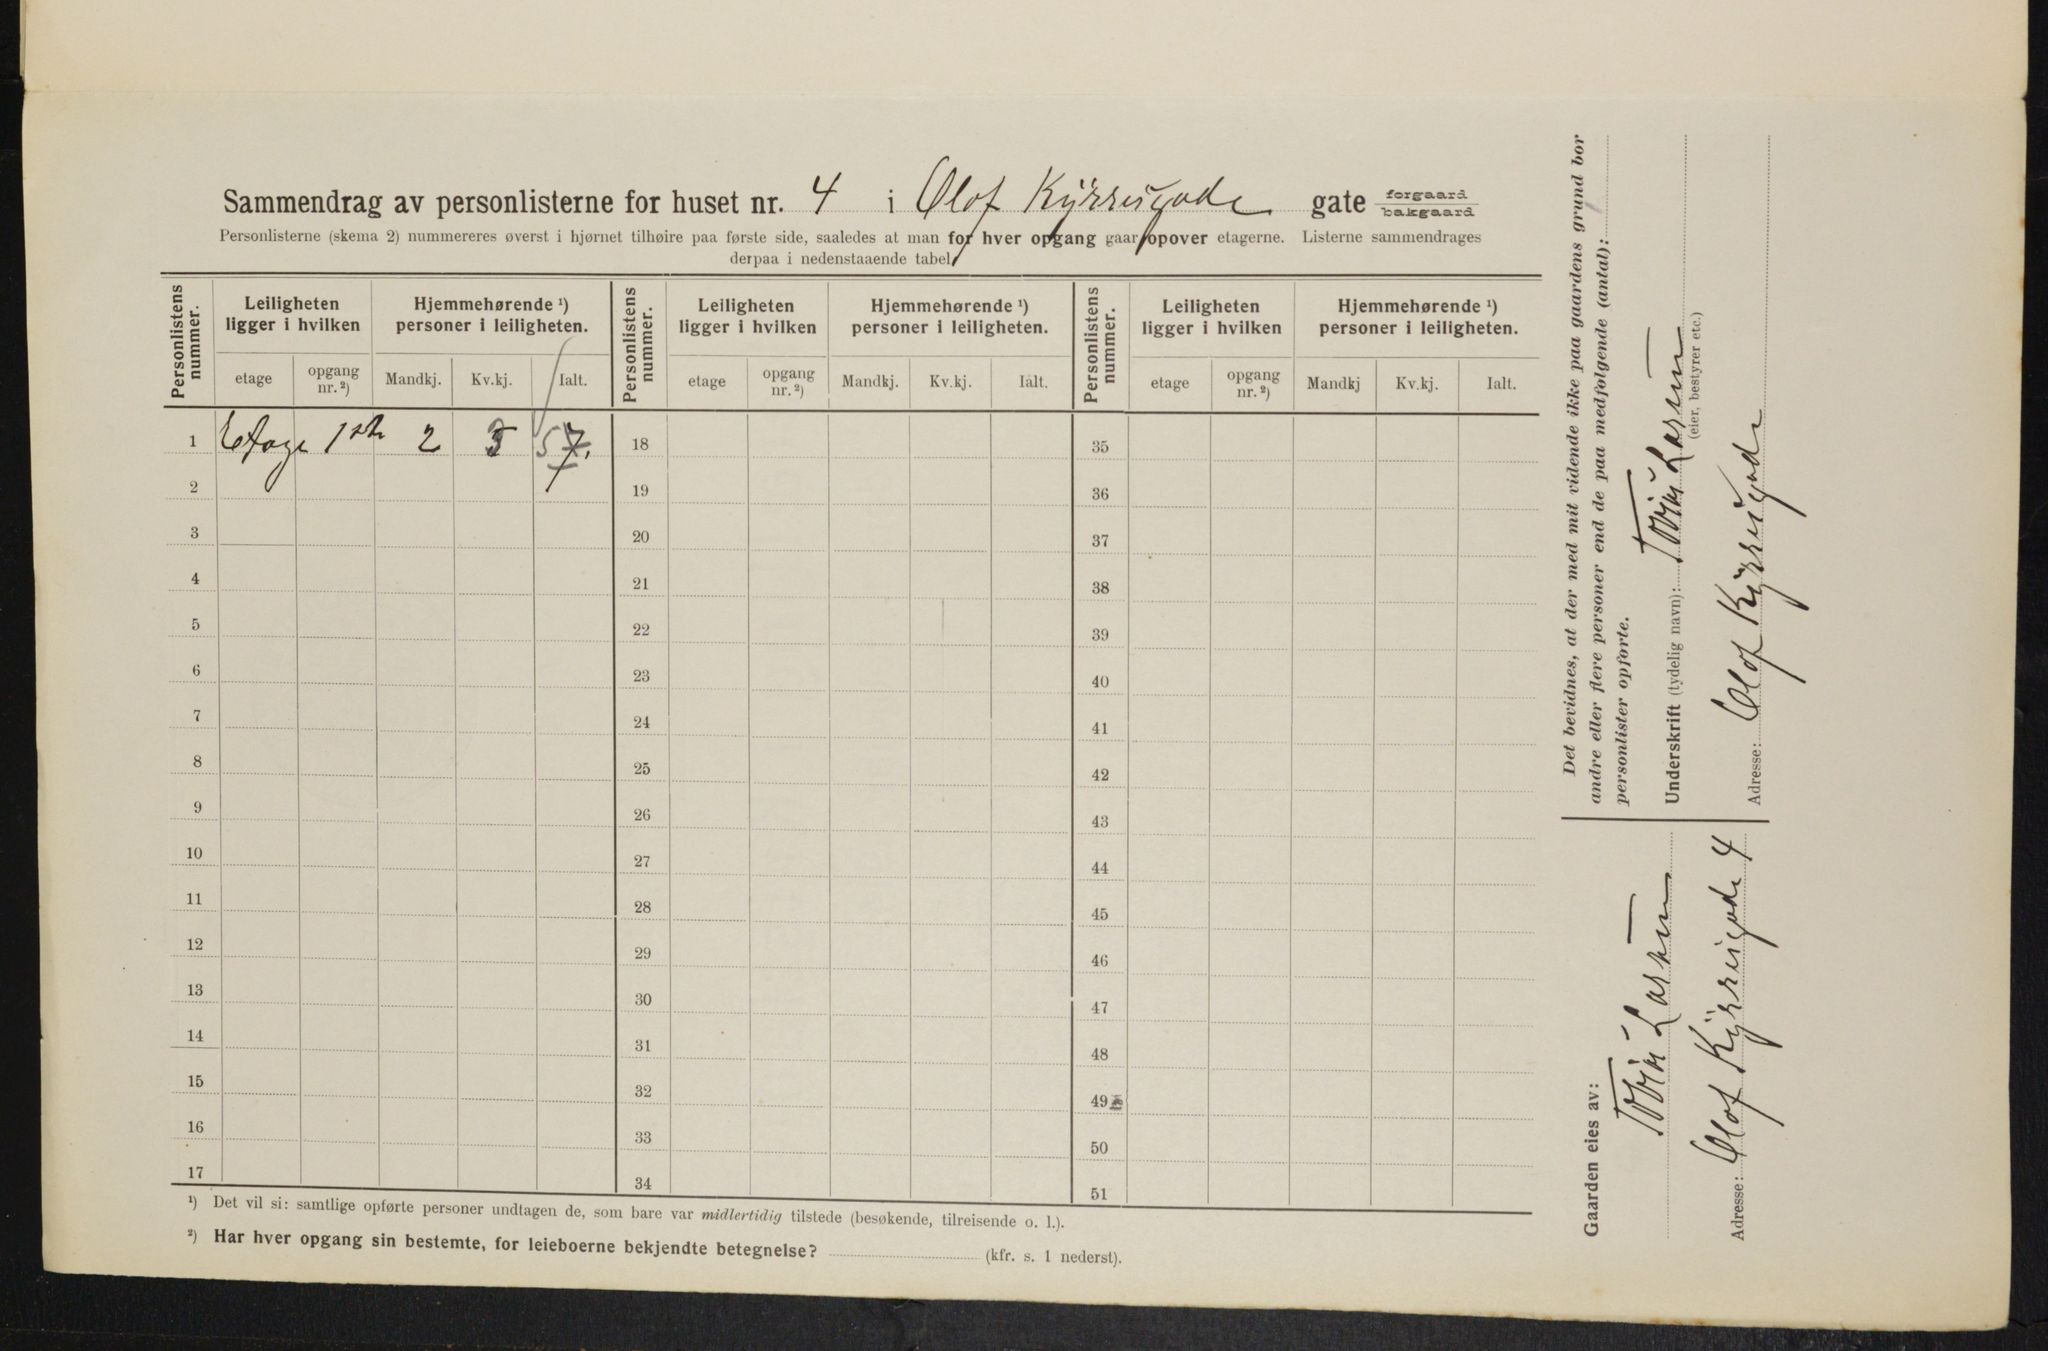 Sammendrag av personlisterne for huset nr. 4 i Olof Kÿrresgade gate forgaard bakgaard
Personlisterne (skema 2) nummereres øverst i hjørnet tilhøire paa første side, saaledes at man for hver opgang gaar opover etagerne. Listerne sammendrages
derpaa i nedenstaaende tabel.
Personlistens nummer. Leiligheten ligger i hvilken Hjemmehørende ¹) personer i leiligheten. Personlistens nummer. Leiligheten ligger i hvilken Hjemmehørende ¹) personer i leiligheten. Personlistens nummer. Leiligheten ligger i hvilken Hjemmehørende ¹) personer i leiligheten.
etage opgang nr. ²) Mandkj. Kv.kj. Ialt. etage opgang nr. ²) Mandkj. Kv.kj. Ialt. etage opgang nr. ²) Mandkj Kv.kj. Ialt.
1 Etage 1ste 2 3 5 7. 18 35
2 19 36
3 20 37
4 21 38
5 22 39
6 23 40
7 24 41
8 25 42
9 26 43
10 27 44
11 28 45
12 29 46
13 30 47
14 31 48
15 32 49
16 33 50
17 34 51
¹) Det vil si: samtlige opførte personer undtagen de, som bare var midlertidig tilstede (besøkende, tilreisende o. l.).
²) Har hver opgang sin bestemte, for leieboerne bekjendte betegnelse? (kfr. s. 1 nederst).
Det bevidnes, at der med mit vidende ikke paa gaardens grund bor
andre eller flere personer end de paa medfølgende (antal):
personlister opførte.
Underskrift (tydelig navn): Larsen
(eier, bestyrer etc.)
Adresse: Olof Kÿrresgade
Gaarden eies av:
Larsen
Adresse: Olof Kÿrresgade 4